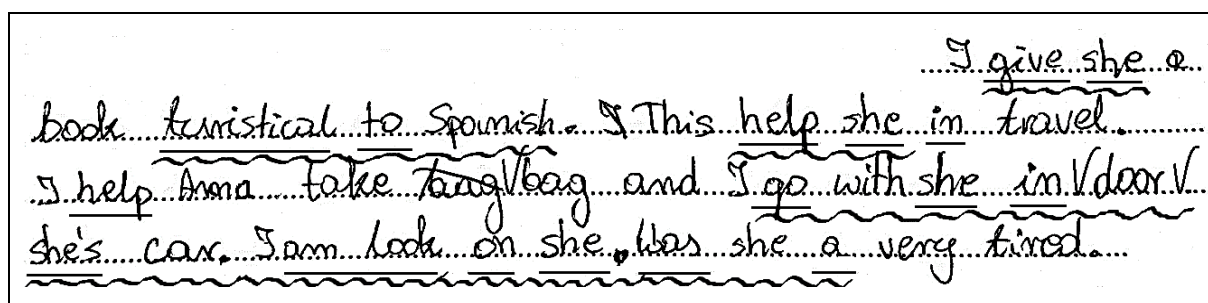 I give she a
book turistical to Spanish. I This help she in travel.
I help Anna take √bag and I go with she in √door√
she's car. I am look on she. Was she a very tired.